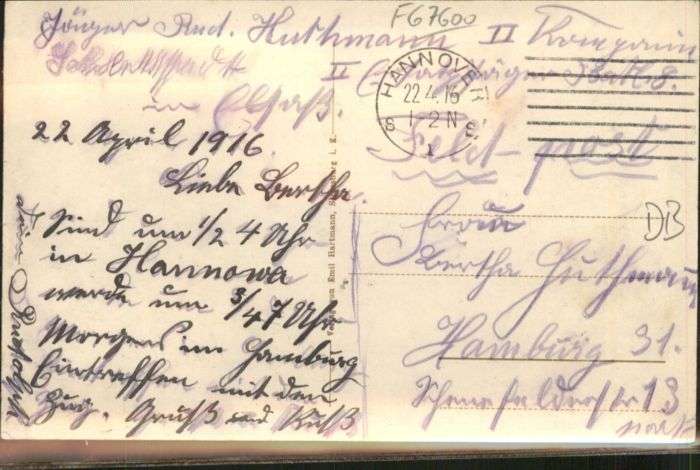 FG7600
Jäger Rud. Huthmann II Kompanie
Schlettstadt II Ersatzjäger Batl. 8.
in Elsaß.
HANNOVER
22.4.16
1-2N
22 April 1916.
Liebe Bertha.
Sind um 1/2 4 Uhr
in Hannowa
werde um 3/4 7 Uhr
Morgens im Hamburg
Eintreffen mit den
Zug. Gruß und Kuß
dein Rudolph
Emil Hartmann,
Feld-post
DB
Frau
Bertha Huthmann
Hamburg 31.
13